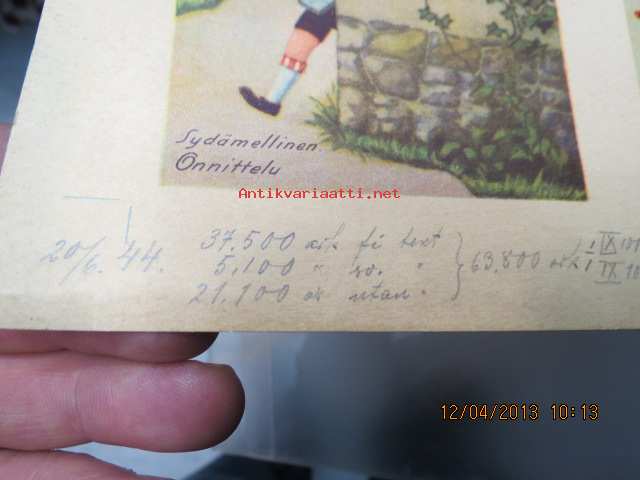 Sydämellinen
Onnittelu
Antikvariaatti.net
20/6. 44. 37.500 ark fi text
5.100 " sv. "
21.100 ark utan "
63.800 ark
12/04/2013 10:13